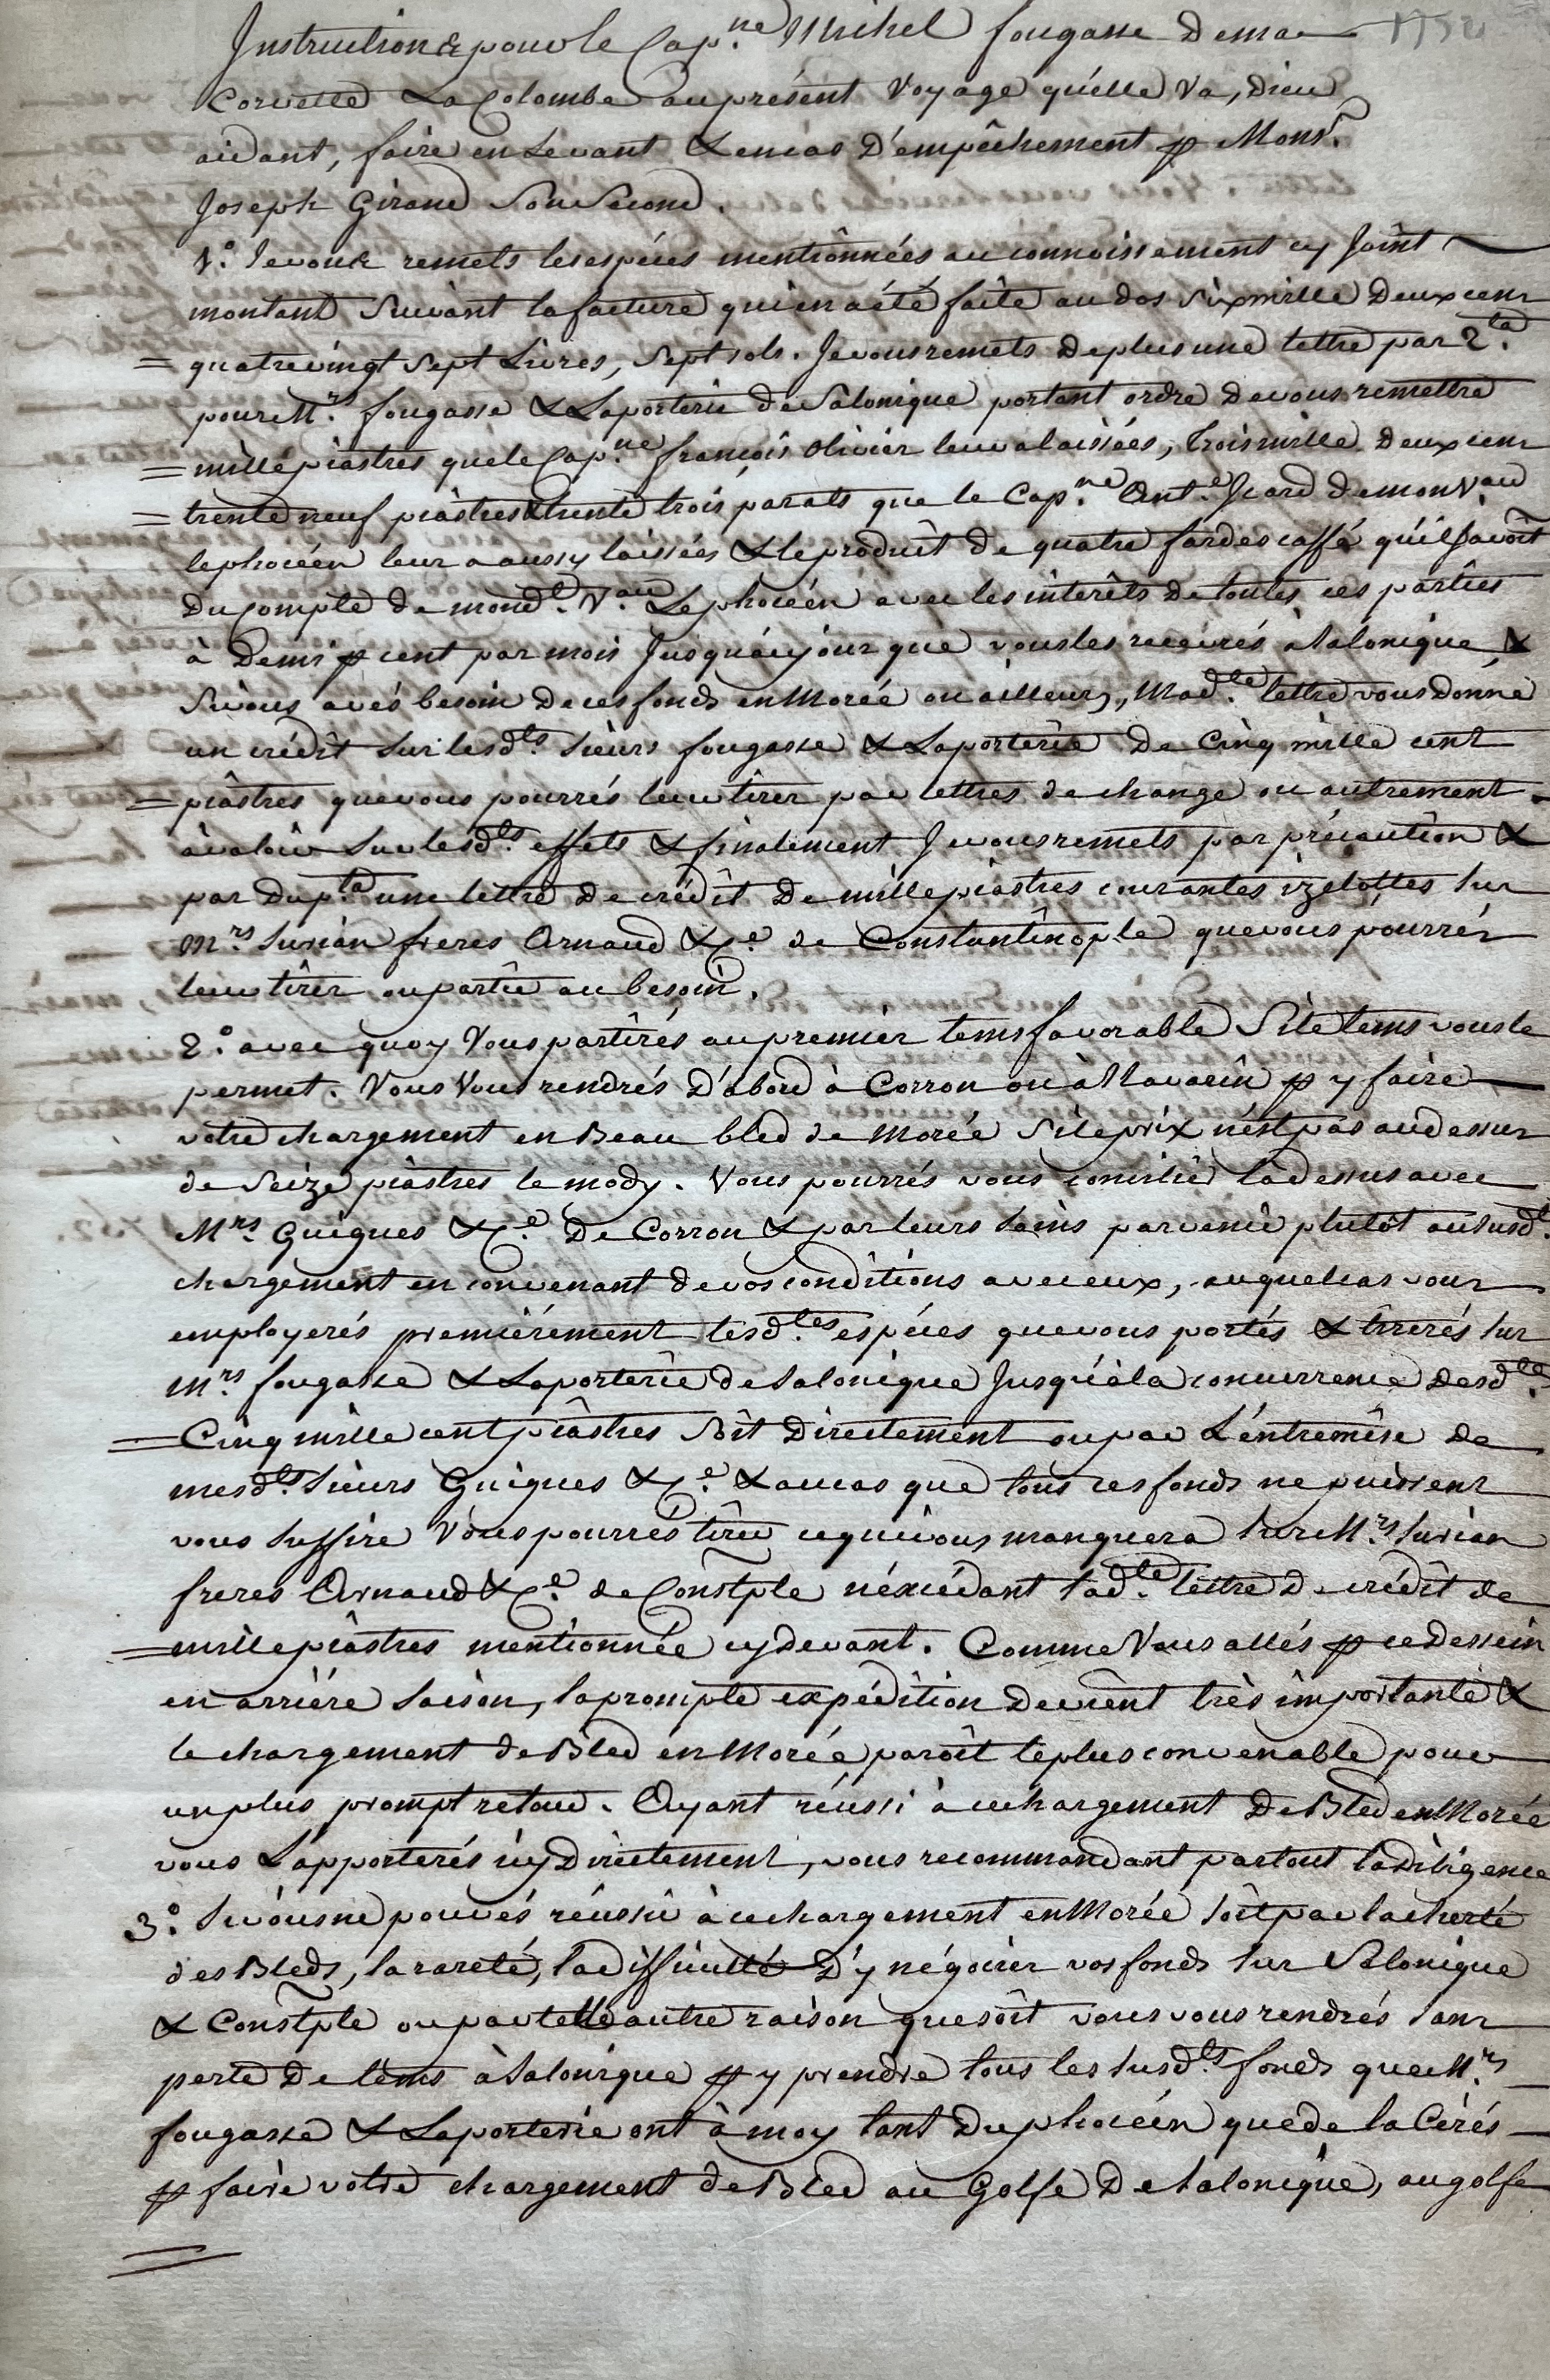 Instructions pour le Cap.ne Michel fougasse de ma 1752
Corvette La Colombe au présent Voyage qu'elle va, Dieu
aidant, faire en Levant & en cas D'empêchement p Mons.r
Joseph Giraud Son Second.
1.° Je vous remets les espéces mentionnées au connoissement cy Joint
montant Suivant la facture qui en a été faite au dos Six mille Deux cens
= quatre vingt Sept Livres, Sept sols. Je vous remets de plus une lettre par 2.ta
pour M.rs fougasse & Laporterie de Salonique portant ordre de vous remettre
= mille piastres que le Cap.ne françois Olivier leur a laissées, Trois mille Deux cens
= trente neuf piastres & trente trois parats que le Cap.ne Ant.e Icard de mon V.au
le phocéen leur a aussy laissées & le produit de quatre fardes caffé qu'il y avoit
du compte de mond.t V.au Le phocéen avec les intérêts de toutes ces parties
à Demi p cent par mois Jusqu'au jour que vous les recevrés à Salonique, &
Si vous avés besoin de ces fonds en Morée ou ailleurs, Mad.te lettre vous donne
un crédit sur lesd.ts Sieurs fougasse & Laporterie De Cinq mille cent
= piastres que vous pourrés leur tirer par lettres de change ou autrement
à valoir sur lesd.ts effets & finalement Je vous remets par précaution &
par dup.ta une lettre de crédit De mille piastres courantes izelottes sur
M.rs Surian freres Arnaud & C.e de Constantinople que vous pourrés
leur tirer ou partie au besoin.
2.° avec quoy Vous partirés au premier tems favorable Si le tems vous le
permet. Vous Vous rendrés D'abord à Corron ou à Navarin p y faire
votre chargement en Beau bled de Morée Si le prix n'est pas au dessus
de Seize piastres le mody. Vous pourrés vous concilier là dessus avec
M.rs Guigues & C.e De Corron & par leurs soins parvenir plutôt au susd.t
chargement en convenant de vos conditions avec eux, auquel cas vous
employerés premiérement lesd.tes espéces que vous portés & tirerés sur
M.rs fougasse & Laporterie de Salonique Jusqu'à la concurrence Desd.tes
= Cinq mille cent piastres Soit Directement ou par L'éntremise de
mesd.ts Sieurs Guigues & C.e & au cas que tous ces fonds ne puissent
vous suffire Vous pourrés tirer ce qui vous manquera sur M.rs Surian
freres Arnaud & C.e de Constple n'éxcédant lad.te lettre De crédit de
= mille piastres mentionnée cy devant. Comme Vous allés p ce Dessein
en arriére Saison, la prompte expédition devient très importante &
le chargement de Bled en Morée paroît le plus convenable pour
un plus prompt retour. Ayant réussi à ce chargement De Bled en Morée
vous L'apporterés icy Directement, vous recommandant partout la diligence
3.° Si vous ne pouvés réussir à ce chargement en Morée soit par la cherté
des Bleds, la rareté, la difficulté D'y négocier vos fonds sur Salonique
& Constple ou par telle autre raison que soit vous vous rendrés sans
perte De tems à Salonique p y prendre tous les susd.ts fonds que M.rs
fougasse & Laporterie ont à moy tant Du phocéen que de la Cérés
p faire votre chargement de Bled au Golfe De Salonique, au golfe